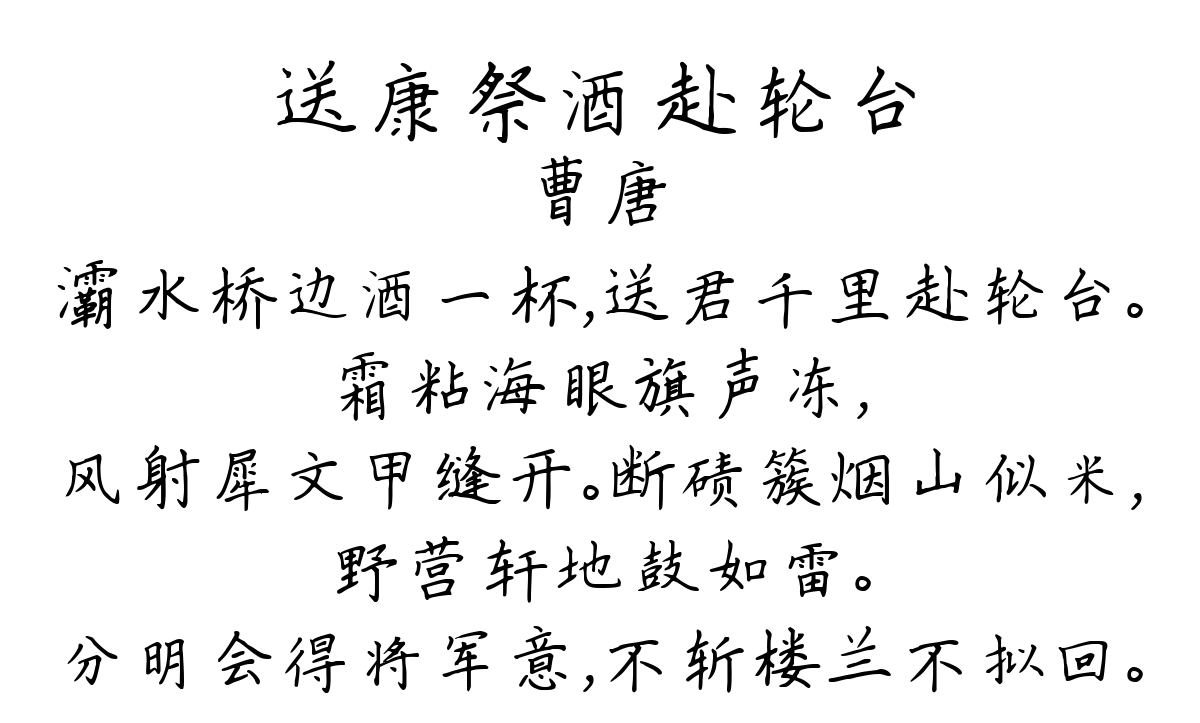 送康祭酒赴轮台
曹唐
灞水桥边酒一杯,送君千里赴轮台。
霜粘海眼旗声冻,
风射犀文甲缝开。断碛簇烟山似米,
野营轩地鼓如雷。
分明会得将军意,不斩楼兰不拟回。